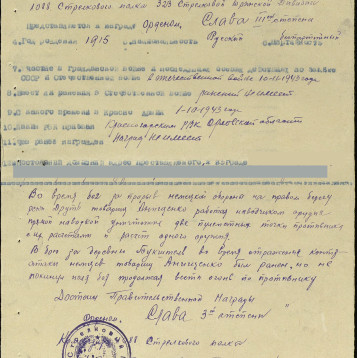 1088 Стрелкового полка 323 Стрелковой Брянской Дивизии
Представляется к награде Орденом Слава III степени
4. Год рождения 1915 5. национальность Русский беспартийный
7. участие в гражданской войне и последующих боевых действиях по защите
СССР и отечественной войне в отечественной войне 1943 года
8. имеет ли ранения в Отечественной войне ранений не имеет
9. С какого времени в Красной Армии
1-10-1943 года
10. каким РВК призван Красногорским РВК Орловской области
11. чем ранее награжден Наград не имеет
Во время боя за прорыв немецкой обороны на правом берегу
реки Друть товарищ работая наводчиком орудия
прямой наводкой уничтожил две пулеметные точки противника
с их расчетами и расчет одного орудия.
В бою за деревню во время отражения контр-
атаки немцев товарищ был ранен, но не
покинул поля боя продолжая вести огонь по противнику
Достоин Правительственной Награды
Орденом. Слава 3й степени
88 Стрелкового полка